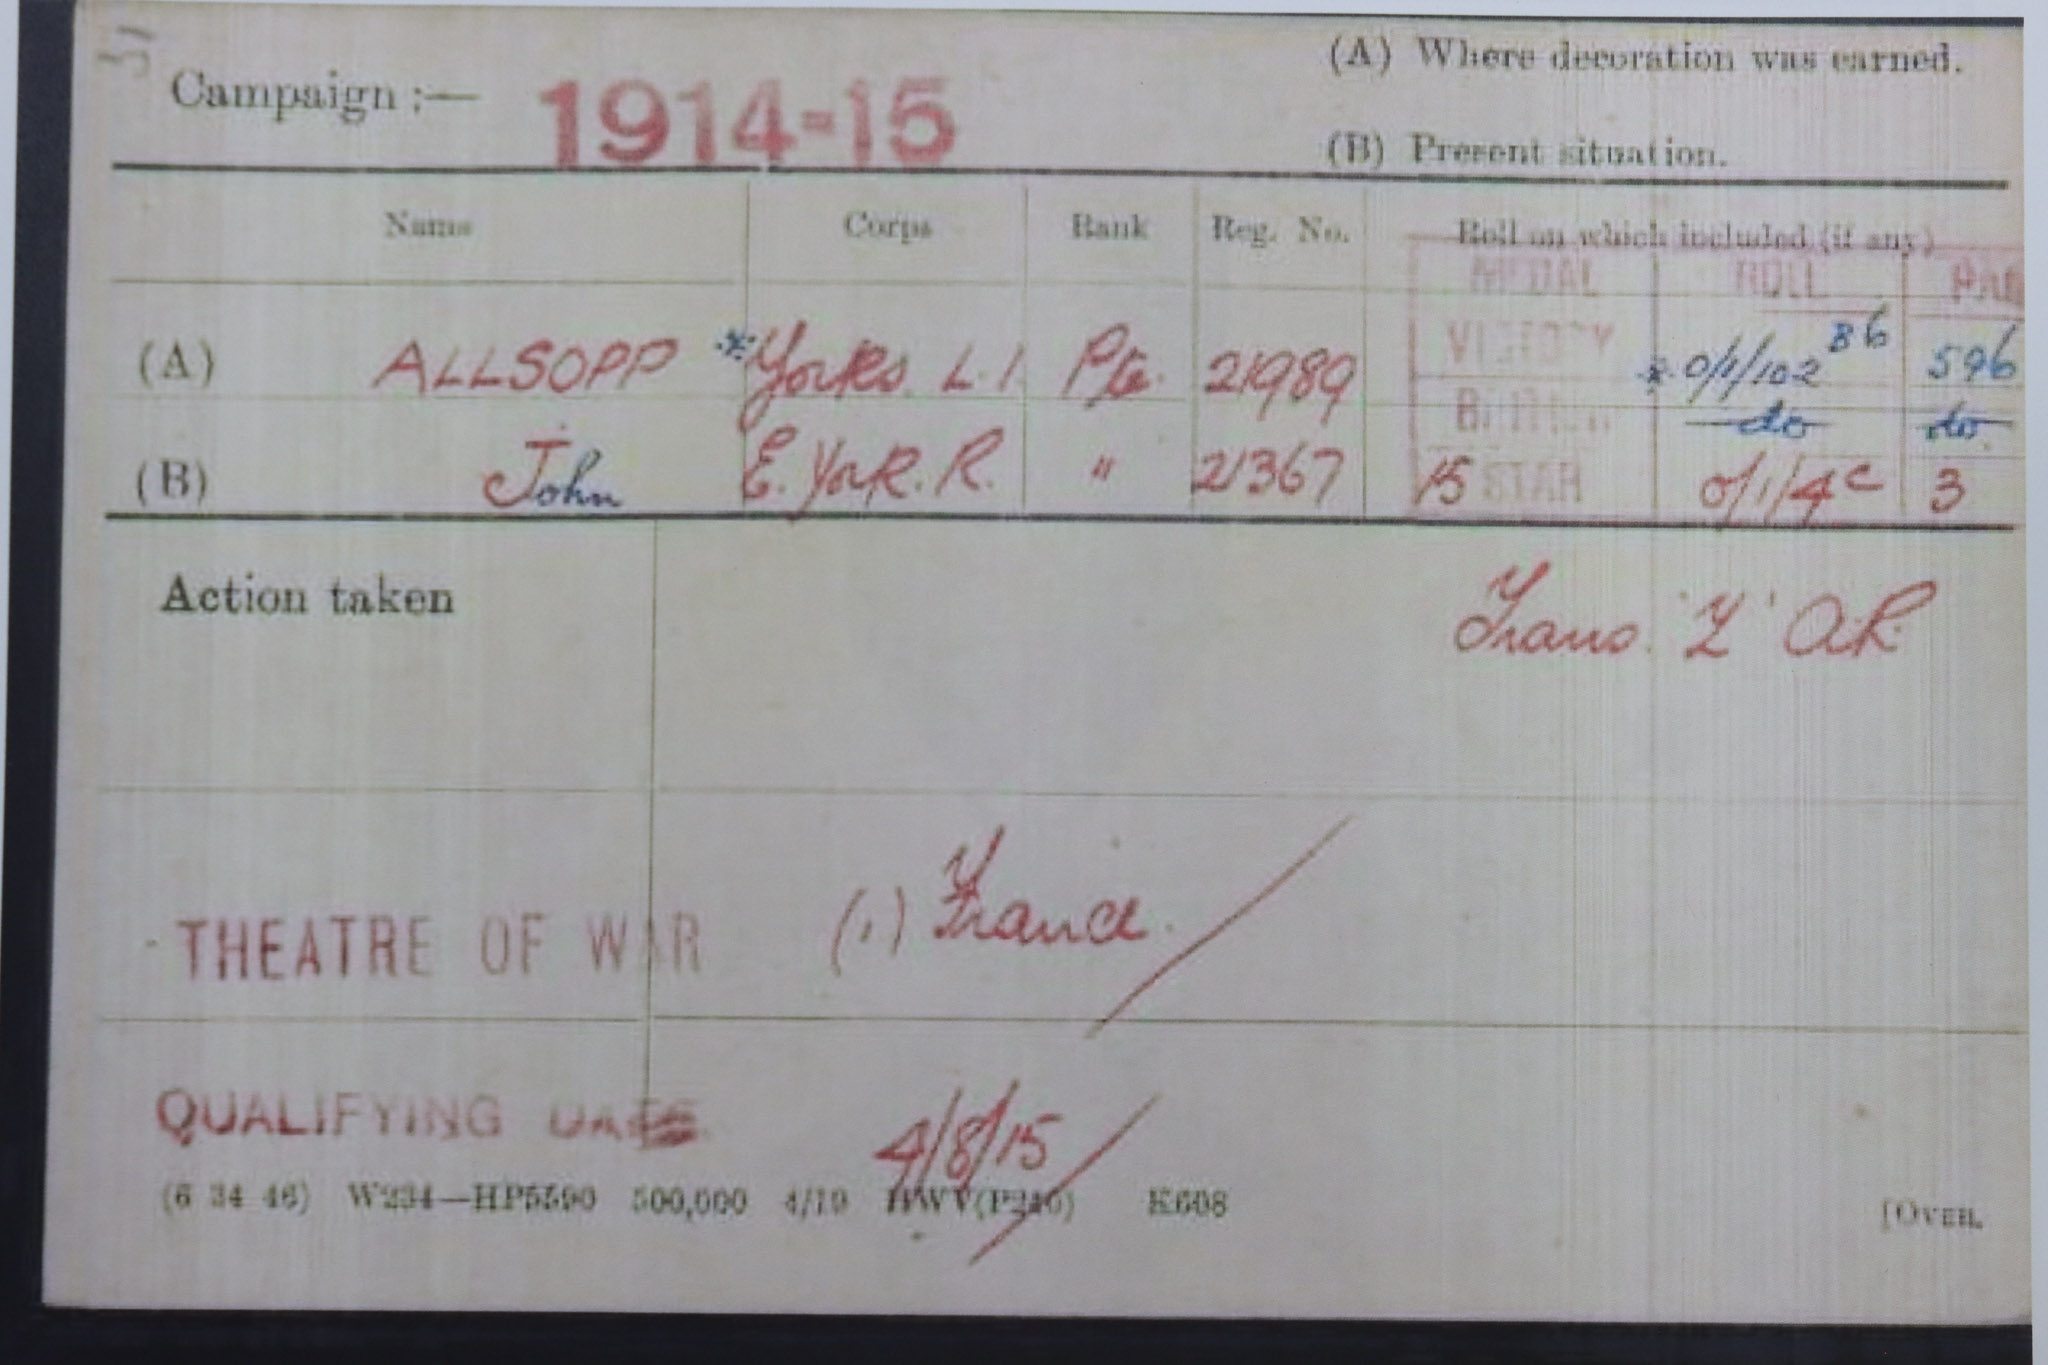 (A) Where decoration was earned.
Campaign :— 1914-15
(B) Present situation.
Name Corps Rank Reg. No. Roll on which included (if any)
MEDAL ROLL PAG
(A) ALLSOPP * Yorks. L.I. Pte. 21989 VICTORY * O/1/102 B6 596
BRITISH do do.
(B) John E. York. R. " 21367 15 STAR O/1/4 C 3
Action taken
Trans. 'Z' A.R.
THEATRE OF WAR (1) France.
QUALIFYING DATE 4/8/15
(6 34 46) W234—HP5590 500,000 4/19 HWV(P240) K608
[OVER.